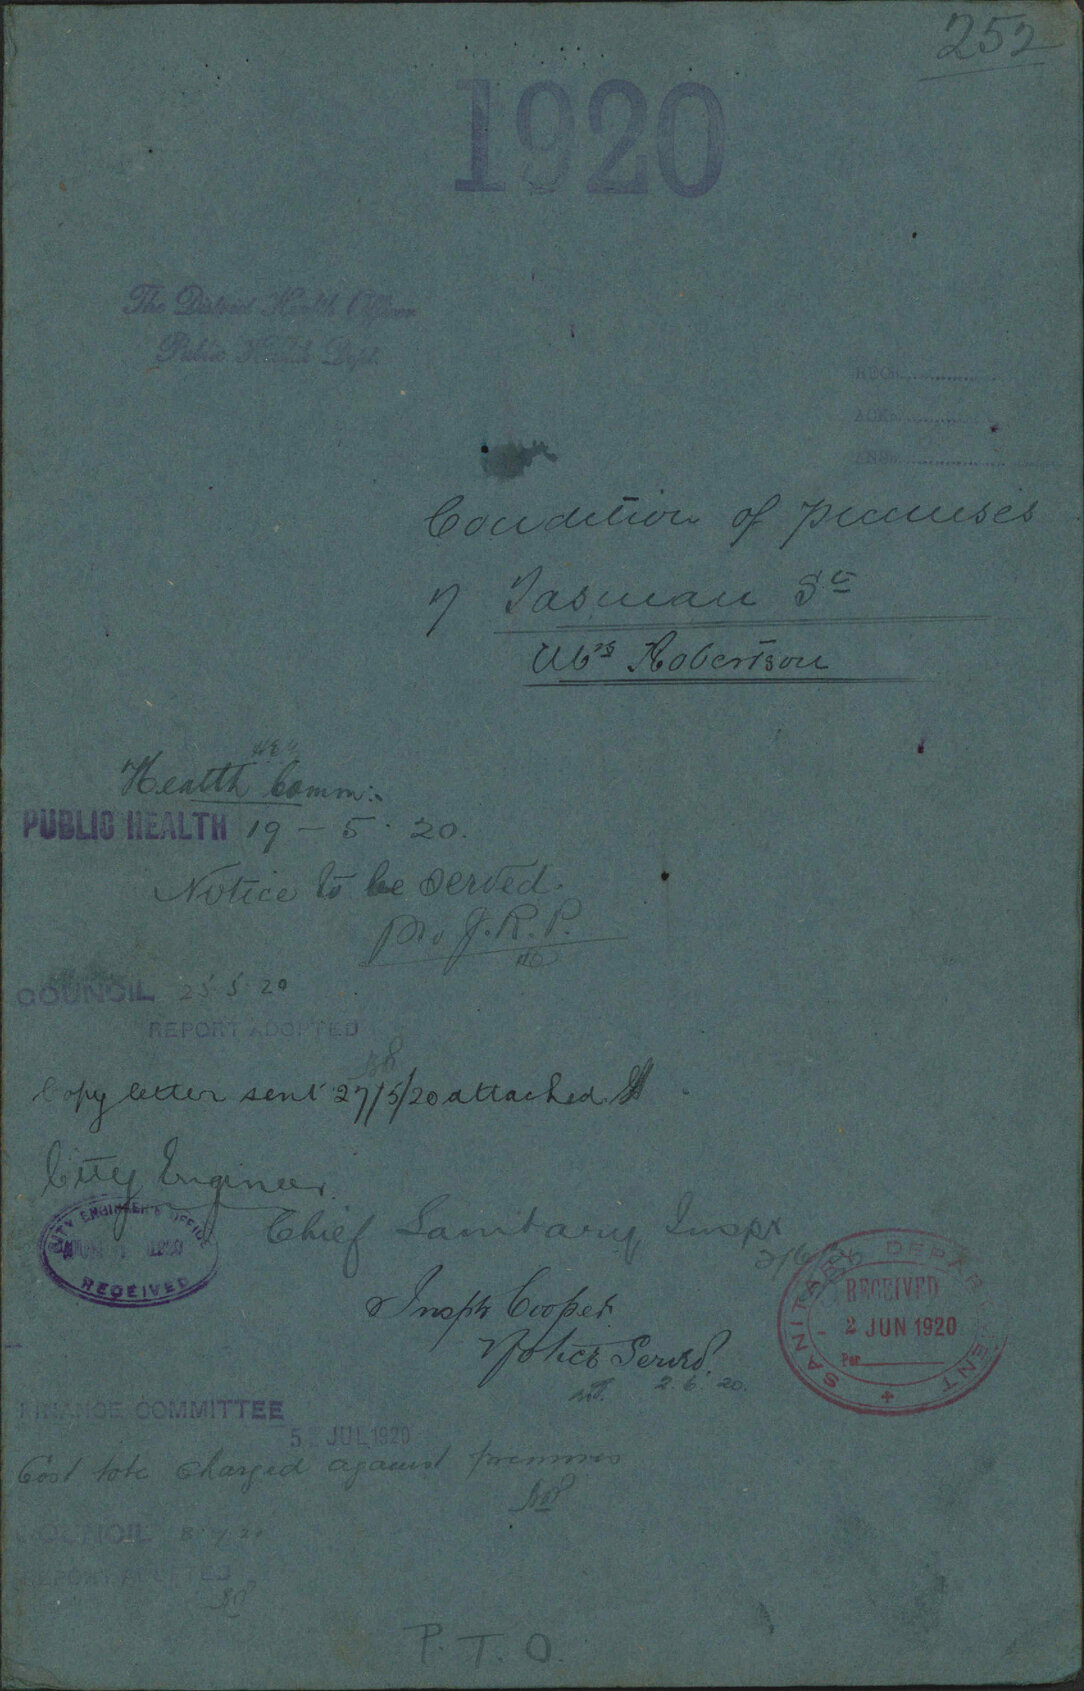 252
1920
The District Health Officer
Public Health Dept.
REC
ACK
ANS
Condition of premises
7 Tasman St
Mrs Robertson
Health Comm:
PUBLIC HEALTH 19 - 5. 20.
Notice to be served.
J.R.P.
COUNCIL 25 5 20
REPORT ADOPTED
Copy letter sent 27/5/20 attached
City Engineer
CITY ENGINEER'S OFFICE
1920
RECEIVED
Chief Sanitary Inspr
2/6/20
SANITARY DEPARTMENT
RECEIVED
- 2 JUN 1920
Per
Inspr Cooper
Notice Served.
2. 6. 20.
FINANCE COMMITTEE
5 JUL 1920
Cost to be charged against premises
COUNCIL 8 7 20
REPORT ADOPTED
P. T. O.